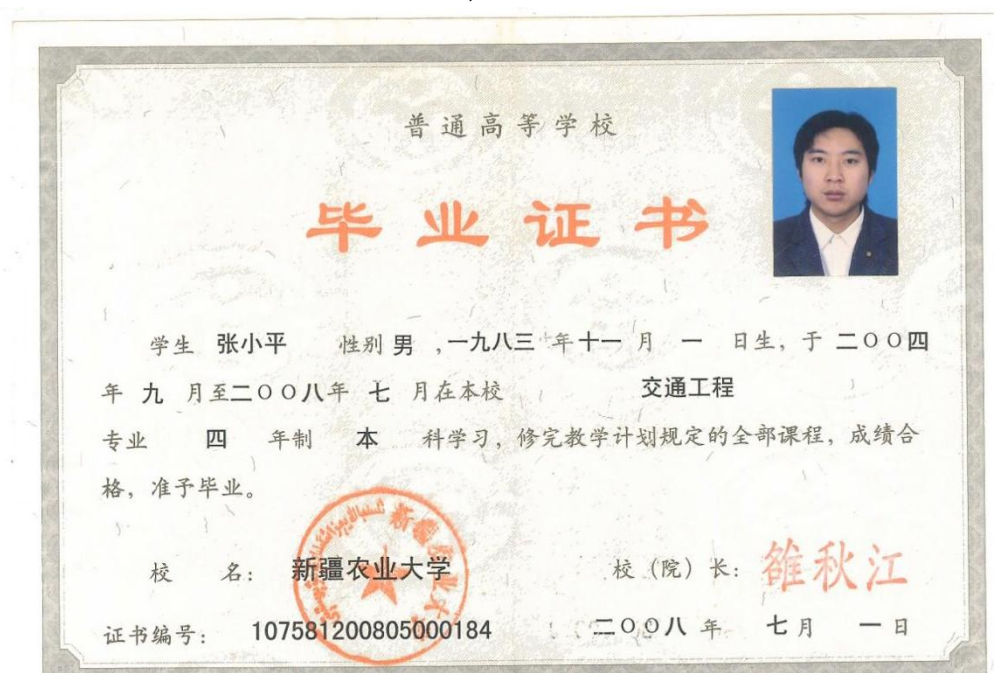 普通高等学校
毕业证书
学生 张小平 性别 男 ,一九八三 年 十一 月 一 日生, 于 二〇〇四
年 九 月至二〇〇八年 七 月在本校 交通工程
专业 四 年制 本 科学习, 修完教学计划规定的全部课程, 成绩合
格, 准予毕业。
校 名: 新疆农业大学 校 (院) 长: 雒秋江
新疆农业大学
证书编号: 107581200805000184 二〇〇八 年 七 月 一 日